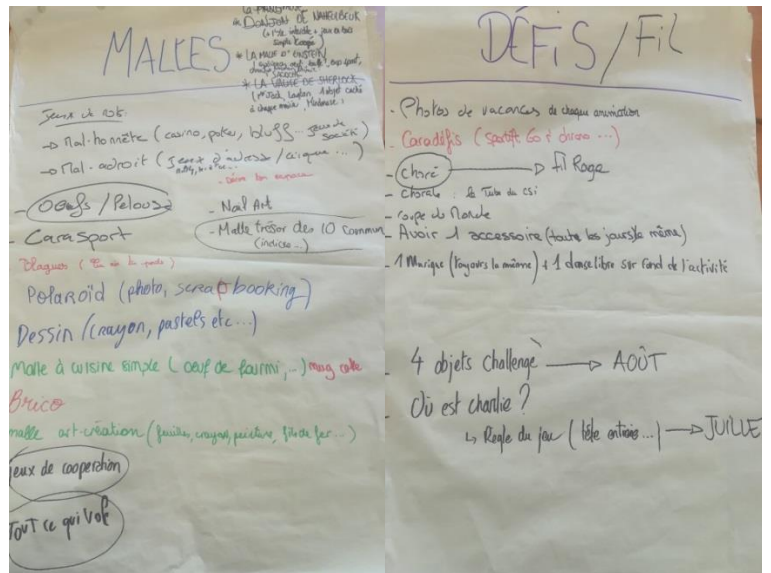 MALLES
DONJON DE NAHEULBEUK
* LA MALLE D'EINSTEIN
* LA VALISE DE SHERLOCK
Jeux de rôle:
→ Mal-honnête (casino, poker, bluff... jeux de société)
→ Mal-adroit (Jeux d'adresse / cirque ...)
- Oeufs / Pelouse
- Nail Art
- Carasport
- Malle trésor des 10 commun
(indices...)
Blagues
Polaroïd (photo, scrapbooking)
Dessin (crayon, pastels etc...)
Malle à cuisine simple (oeuf de fourmi,...) mug cake
Brico
malle art-création (feuilles, crayons, peinture, fils de fer...)
jeux de coopération
TOUT ce qui Vole
DÉFIS / FIL
- Photos de vacances de chaque animation
- Caradéfis (
- Choré → fil Rouge
- Chorale : le Tube du CSI
- Coupe du Monde
- Avoir 1 accessoire (toute les jours le même)
- 1 Musique (toujours la même) + 1 danse libre sur fond de l'activité
- 4 objets challenge → AOÛT
- Où est charlie ?
↳ Règle du jeu (tête → JUILLE